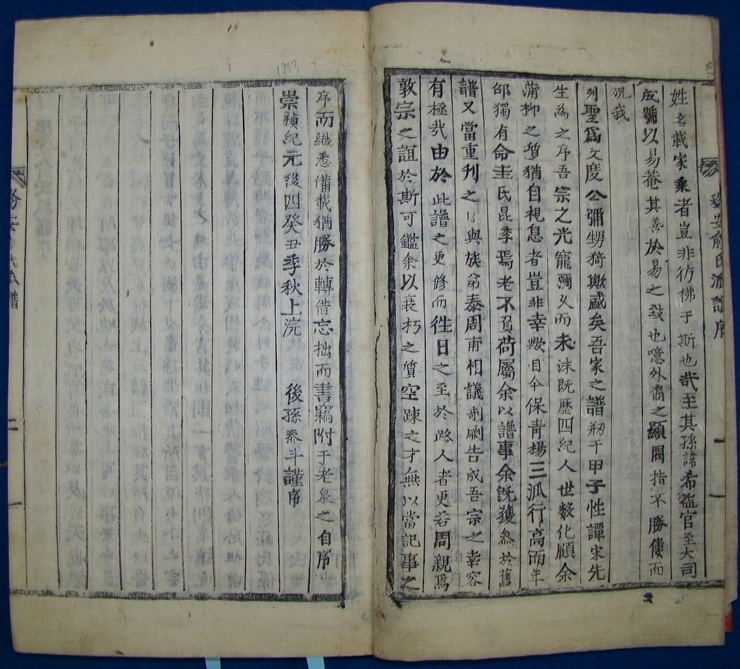 務安俞氏派譜序
姓名載家乘者豈非彷彿于斯也哉至其孫諱希益官至大司
成號以易菴其善於易之發也噫外裔之顯閥指不勝僂而
況我
列聖爲文度公彌甥猗歟盛矣吾家之譜刱于甲子性譚宋先
生為之序吾宗之光寵彌久而未沫旣歷四紀人世數化顧余
蒲柳之質猶自視息者豈非幸歟目今保青楊三派行高而年
邵獨有命圭氏昆季焉老不負荷屬余以譜事余旣獲參於舊
譜又當重刊之以與族弟泰周甫相議剞劂告成吾宗之幸容
有極哉由於此譜之更修而往日之至於路人者更若周親焉
敦宗之誼於斯可鑑余以衰朽之質空踈之才無以當記事之
一
序而緘悉備載猶勝於轉借忘拙而書竊附于老泉之自序
崇禎紀元後四癸丑季秋上浣　後孫泰斗謹序
務安　氏派譜
二
一